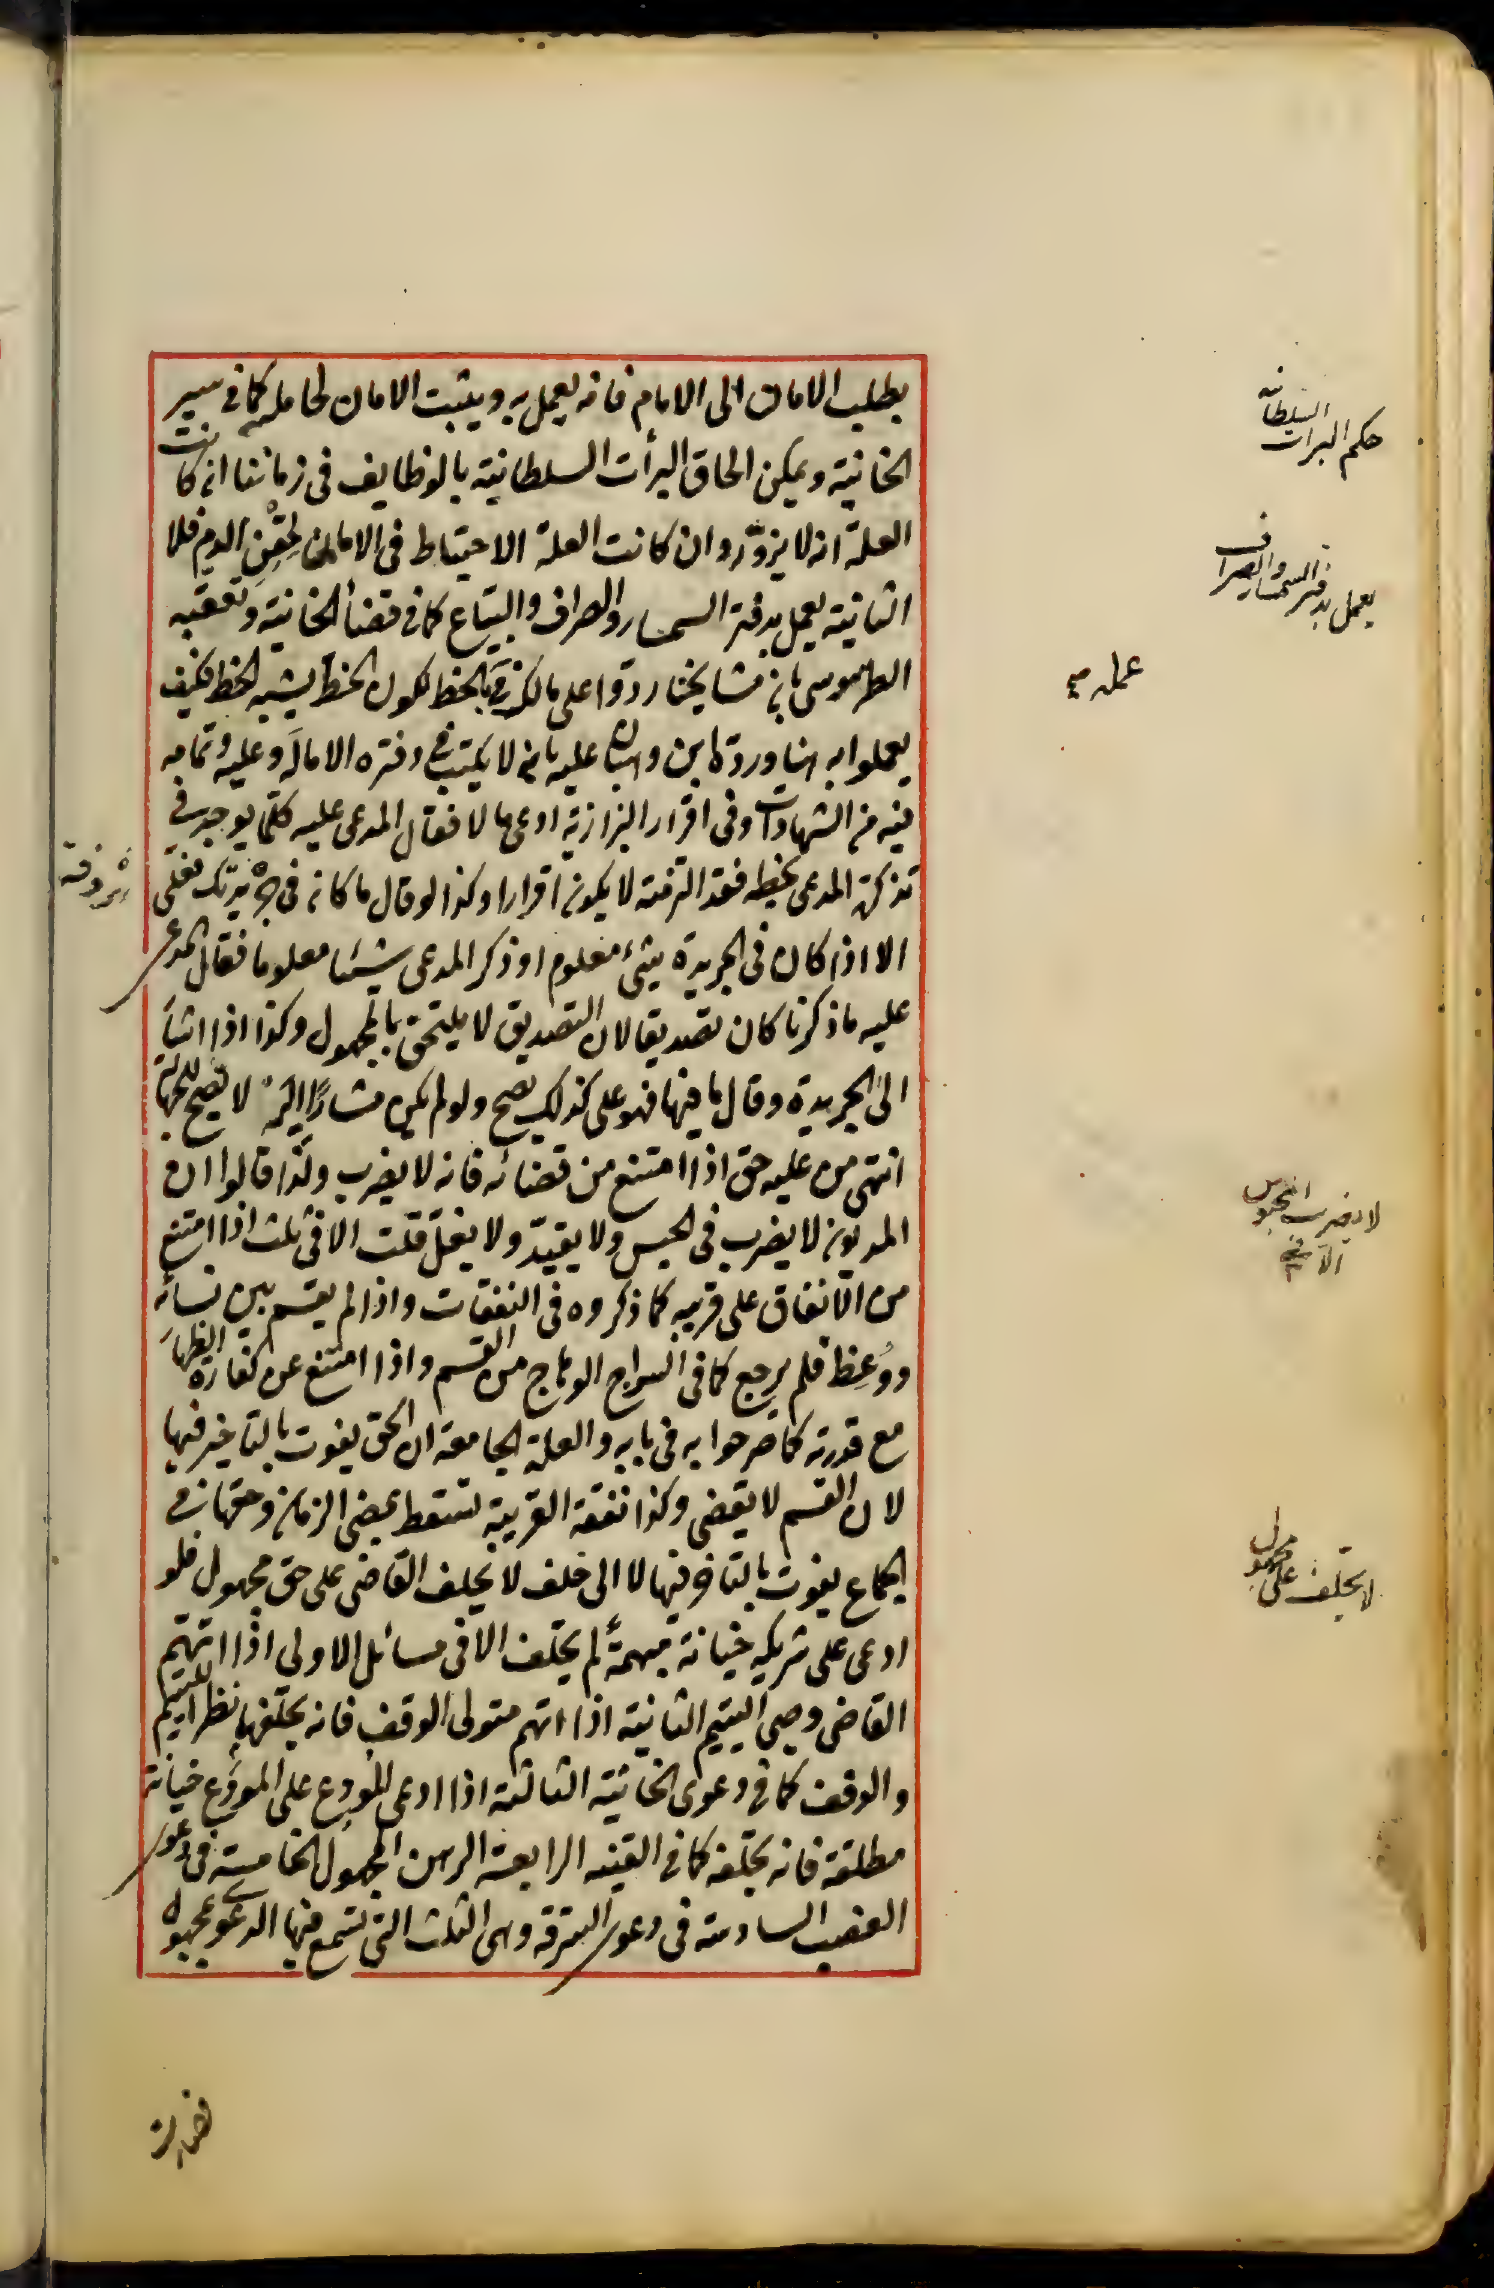 بطلب الامان الى الامام فانه يعمل به ويثبت الامان لحامله كما في سير
الخانية ويمكن الحاق البرأت السلطانية بالوظايف في زماننا ان كانت
العلة انه لا يزوّر وان كانت العلة الاحتياط في الامان لحقن الدم فلا
الثانية يعمل بدفتر السمسار والصراف والبيّاع كما في قضأ الخانية وتعقبه
الطرسوسى بان مشايخنا ردّوا على مالك في بالخط لكون الخط يشبه الخط فكيف
يعملوا به هنا وردّه ابن وهبان عليه بانه لا يكتب في دفتره الا ماله وعليه وتمامه
فيه من الشهادات وفى اقرار البزازية ادعى مالا فقال المدعى عليه كلّما يوجد في
تذكرة المدعى بخطه فقد التزمته لا يكون اقرارا وكذا لو قال ما كان فى جريدتك فعلى
الا اذا كان فى الجريدة شئ معلوم او ذكر المدعى شيئا معلوما فقال المدعى
عليه ما ذكرنا كان تصديقا لان التصديق لا يلتحق بالمجهول وكذا اذا اشاَ
الى الجريدة وقال ما فيها فهو على كذلك يصح ولو لم يكن مشارًا اليه لا يصح للجهالة
انتهى من عليه حق اذا امتنع من قضائه فانه لا يضرب ولذا قالوا ان
المديون لا يضرب فى الحبس ولا يقيّد ولا يغلّ قلت الا فى ثلث اذا امتنع
من الانفاق على قريبه كما ذكروه فى النفقات واذا لم يقسم بين نسائه
ووُعِظ فلم يرجع كما فى السراج الوهاج من القسم واذا امتنع عن كفارة الظهاَ
مع قدرته كما صرحوا به فى بابه والعلة الجامعة ان الحق يفوت بالتأخير فيها
لان القسم لا يقضى وكذا نفقة القريب تسقط بمضى الزمان وحقها في
الجماع يفوت بالتأخر فيها لا الى خلف لا يحلف القاضى على حق مجهول فلو
ادعى على شريكه خيانة مبهمة لم يحلف الا فى مسائل الاولى اذا اتهم
القاضى وصى اليتيم الثانية اذا اتهم متولى الوقف فانه يحلّفها نظرا لليتيم
والوقف كما في دعوى الخانية الثالثة اذا ادعى المودِع على المودَع خيانة
مطلقة فانه يحلّفه كما في القنيه الرابعة الرهن المجهول الخامسة فى دعوى
الغصب السادسة فى دعوى السرقة وهى الثلث التى تسمع فيها الدعوى بمجهول
حكم البرات السلطانيه
يعمل بدفتر السمسار والصراف
عمله صح
لا يضرب المحبوس
الا في ٣
لا يحلّف على مجهول